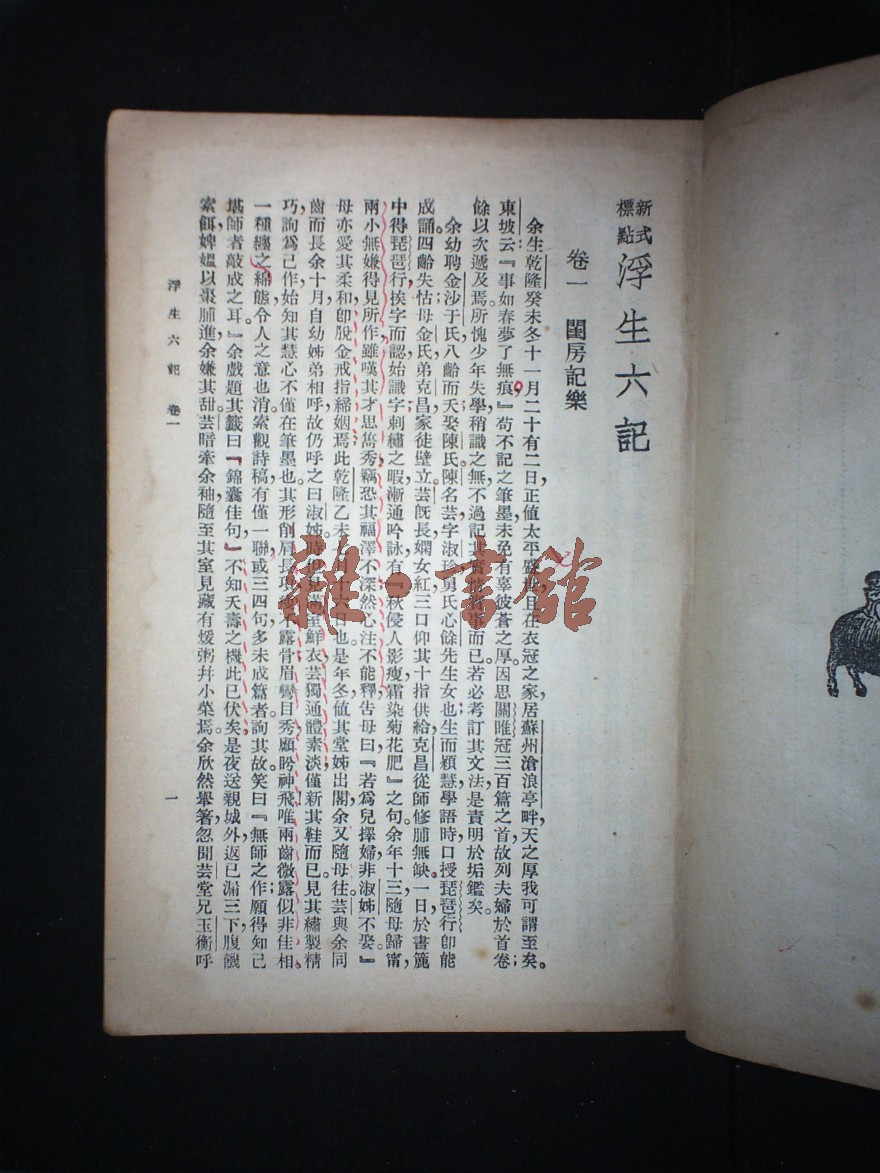 新式標點 浮生六記
卷一 閨房記樂
余生乾隆癸未冬十一月二十有二日,正値太平盛世,且在衣冠之家,居蘇州滄浪亭畔,天之厚我,可謂至矣。
東坡云:『事如春夢了無痕』苟不記之筆墨,未免有辜彼蒼之厚。因思關雎冠三百篇之首,故列夫婦於首卷;
餘以次遞及焉。所愧少年失學,稍識之無,不過記其實情實事而已。若必考訂其文法,是責明於垢鑑矣。
余幼聘金沙于氏,八齡而夭。娶陳氏。陳名芸,字淑珍,舅氏心餘先生女也。生而穎慧,學語時,口授琵琶行,卽能
成誦。四齡失怙,母金氏,弟克昌,家徒壁立。芸旣長,嫻女紅,三口仰其十指供給;克昌從師,修脯無缺。一日,於書簏
中得琵琶行,挨字而認,始識字。刺繡之暇,漸通吟詠,有『秋侵人影瘦,霜染菊花肥』之句。余年十三,隨母歸甯,
兩小無嫌,得見所作,雖嘆其才思雋秀,竊恐其福澤不深,然心注不能釋,告母曰:『若爲兒擇婦,非淑姊不娶。』
母亦愛其柔和,卽脫金戒指締姻焉。此乾隆乙未七月十六日也。是年冬,値其堂姊出閣,余又隨母往。芸與余同
齒而長余十月,自幼姊弟相呼,故仍呼之曰淑姊。時但見滿室鮮衣,芸獨通體素淡,僅新其鞋而已。見其繡製精
巧,詢爲己作,始知其慧心不僅在筆墨也。其形削肩長項,瘦不露骨,眉彎目秀,顧盼神飛,唯兩齒微露,似非佳相。
一種纏之綿態,令人之意也消。索觀詩稿,有僅一聯,或三四句,多未成篇者。詢其故,笑曰:『無師之作,願得知己
堪師者敲成之耳。』余戲題其籤曰:『錦囊佳句,』不知夭壽之機,此已伏矣。是夜送親城外,返已漏三下,腹饑
索餌,婢嫗以棗脯進,余嫌其甜。芸暗牽余袖,隨至其室,見藏有煖粥幷小菜焉。余欣然舉箸,忽聞芸堂兄玉衡呼
浮生六記 卷一
一
雜·書館